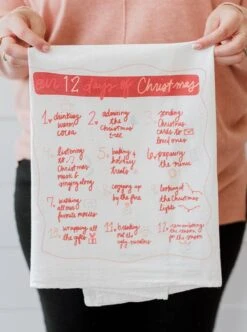 our 12 days of Christmas
1. drinking
warm
cocoa
2. admiring
the Christmas
tree
3. sending
Christmas
cards to
loved ones
4. listening
to
Christmas
music &
singing along
5. baking
holiday
treats
6. preparing
the menu
7. watching
all our
favorite movies
8. cozying up
by the fire
9. looking at
the Christmas
lights
10. wrapping all
the gifts
11. breaking
out the
ugly sweaters
12. remembering
the reason
for the season